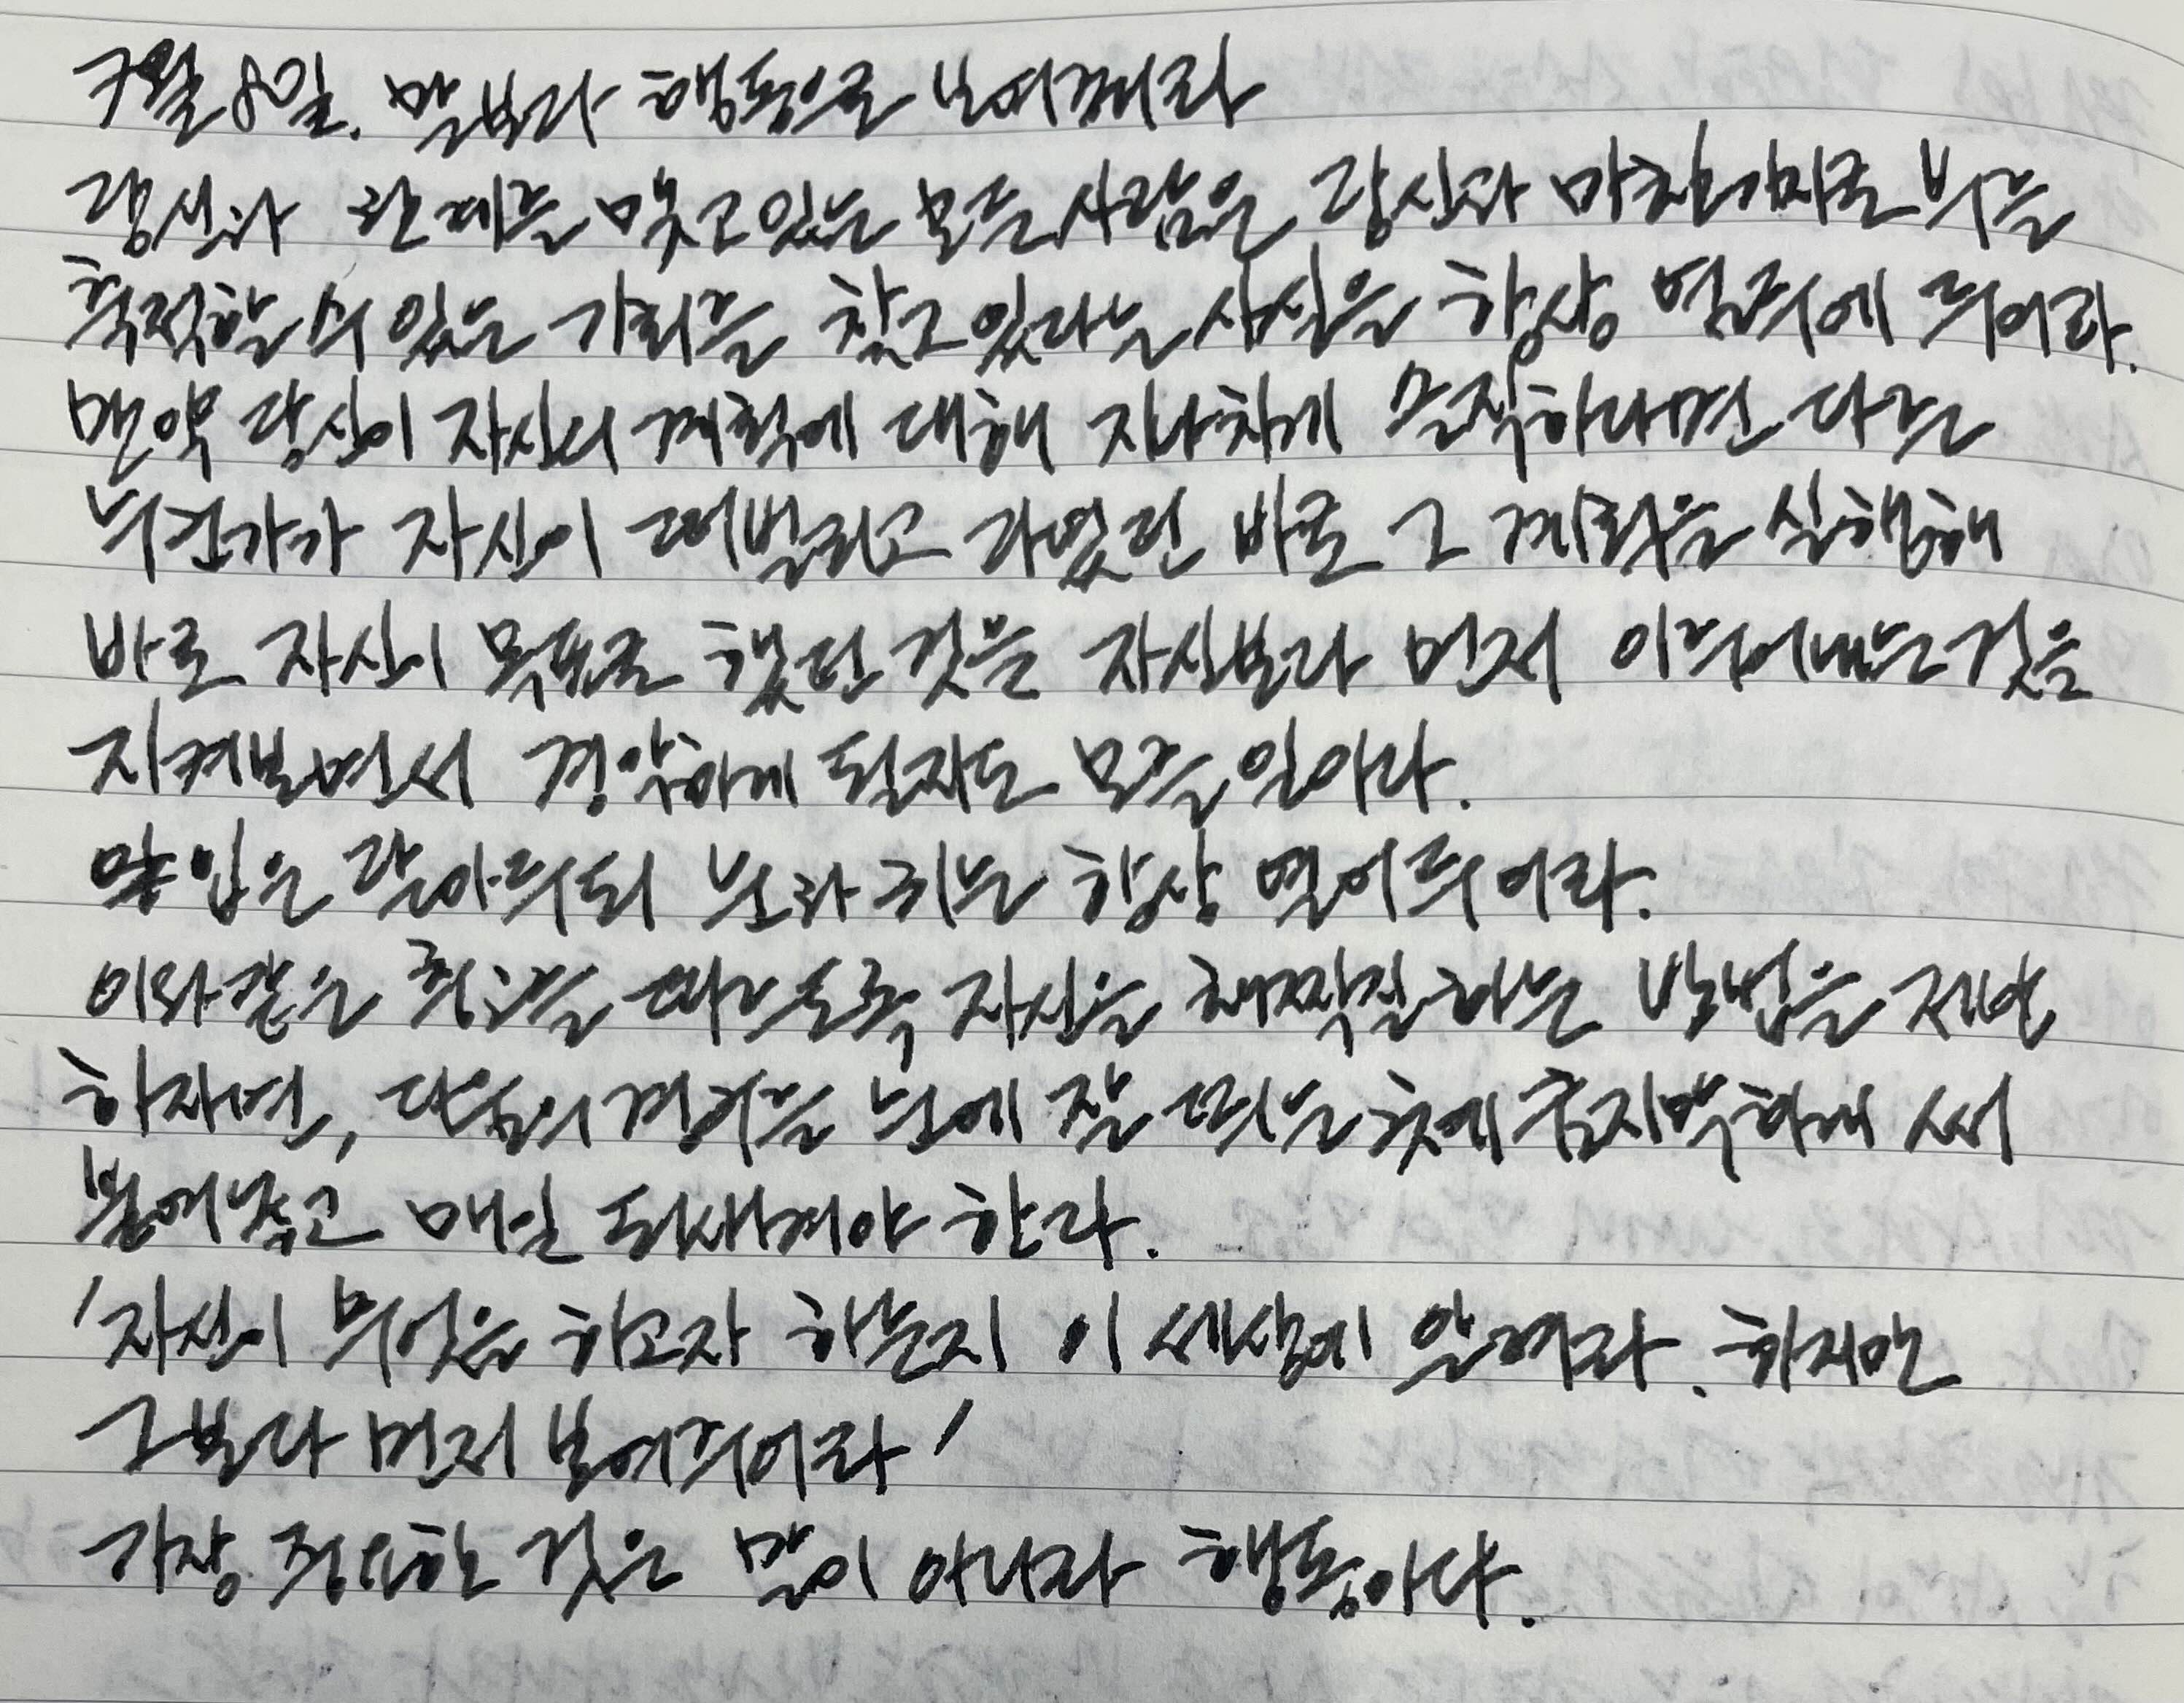 7월 8일. 말보다 행동으로 보여줘라
당신과 관계를 맺고 있는 모든 사람은 당신과 마찬가지로 부를
축적할 수 있는 기회를 찾고 있다는 사실을 항상 염두에 두어라.
만약 당신이 자신의 계획에 대해 지나치게 솔직하다면 다른
누군가가 자신이 떠벌리고 다녔던 바로 그 계획을 실행해
바로 자신이 목표로 했던 것을 자신보다 먼저 이루어내는 것을
지켜보면서 경악하게 될지도 모를 일이다.
입은 닫아두되 눈과 귀는 항상 열어두어라.
이와 같은 충고를 따르도록 자신을 채찍질하는 방법을 제안
하자면, 다음의 경구를 눈에 잘 띄는 곳에 큼지막하게 써
붙여놓고 매일 되새겨야 한다.
'자신이 무엇을 하고자 하는지 이 세상에 알려라. 하지만
그보다 먼저 보여주어라'
가장 중요한 것은 말이 아니라 행동이다.